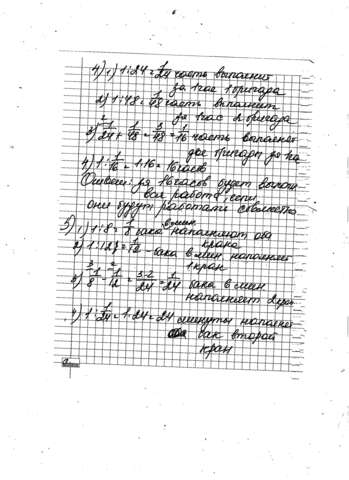 4) 1) 1:24=1/24 часть выполнит
за 1 час 1 бригада
2) 1:48=1/48 часть выполнит
за 1 час 2 бригада
3) 1/24+1/48=3/48=1/16 часть выполнят
две бригады за час
4) 1:1/16=1·16=16 часов
Ответ: за 16 часов будет выпол
вся работа, если
они будут работать совместно
5) 1) 1:8=1/8 бака наполняют оба
в мин.
крана
2) 1:12=1/12 - бака в мин. наполняет
1 кран
3) 1/8-1/12=3-2/24=1/24 бака в мин
наполняет 2 кран
4) 1:1/24=1·24=24 минуты наполнет
бак второй
кран